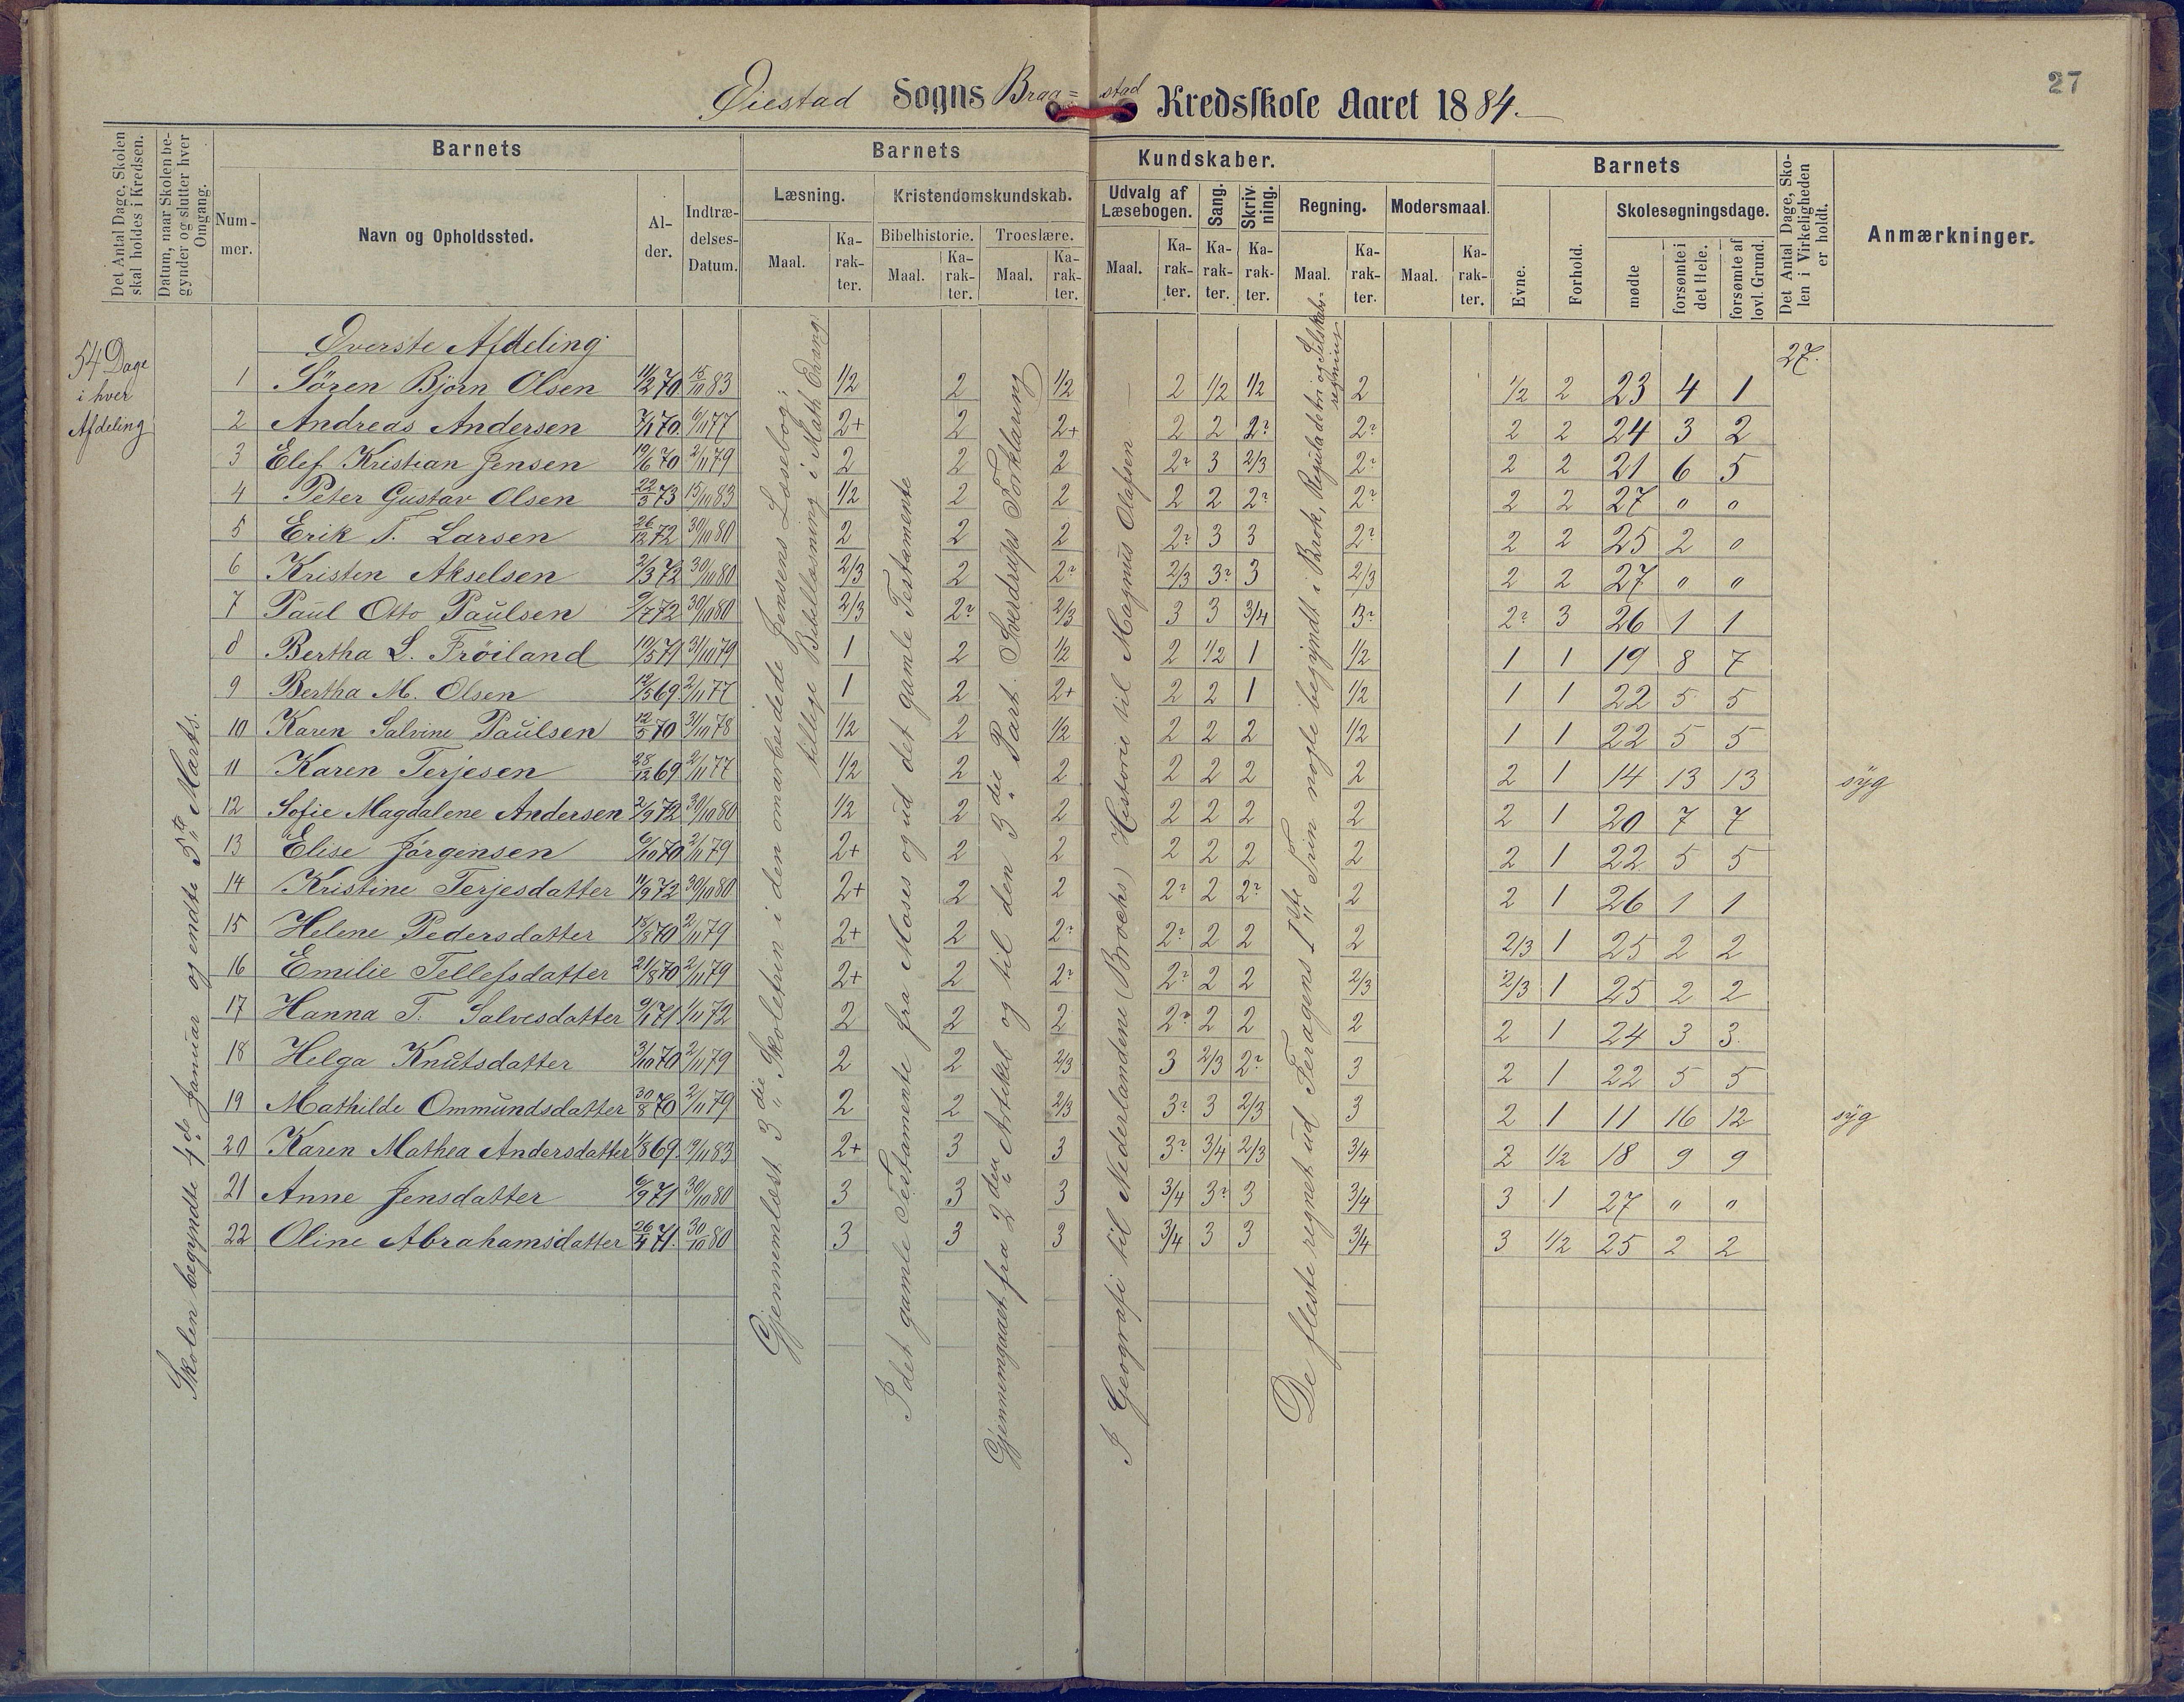 27
Øiestad Sogns Braa=stad Kredsskole Aaret 1884.
Det Antal Dage, Skolen skal holdes i Kredsen.
Datum, naar Skolen begynder og slutter hver Omgang.
Barnets
Nummer.
Navn og Opholdssted.
Alder.
Indtrædelses-Datum.
Barnets Kundskaber.
Læsning.
Maal.
Karakter.
Kristendomskundskab.
Bibelhistorie.
Maal.
Karakter.
Troeslære.
Maal.
Karakter.
Udvalg af Læsebogen.
Maal.
Karakter.
Sang.
Karakter.
Skrivning.
Karakter.
Regning.
Maal.
Karakter.
Modersmaal.
Maal.
Karakter.
Barnets
Evne.
Forhold.
Skolesøgningsdage.
mødte
forsømte i det Hele.
forsømte af lovl. Grund.
Det Antal Dage, Skolen i Virkeligheden er holdt.
Anmærkninger.
54 Dage
i hver
Afdeling
Skolen begyndte 4de Januar og endte 5te Marts.
Øverste Afdeling
27.
Gjennemlæst 3die Skoletrin i den omarbeidede Jensens Læsebog;
tillige Bibellæsning i Math. Evang.
I det gamle Testamente fra Moses og ud det gamle Testamente
Gjennemgaaet fra 2den Artikel og til den 3die Part. Sverdrups Forklaring
I Geografi til Nederlandene (Brochs) Historie til Magnus Olafsen
De fleste regnet ud Feragens 1ste Trin nogle begyndt i Brøk, Reguladetri og Selskabs-
regning
1 Søren Bjørn Olsen 11/12 70 15/10 83 1/2 2 1/2 2 1/2 1/2 2 1/2 2 23 4 1
2 Andreas Andersen 7/1 70 6/11 77 2+ 2 2+ 2 2 2? 2? 2 2 24 3 2
3 Elef Kristian Jensen 19/6 70 2/11 79 2 2 2 2? 3 2/3 2? 2 2 21 6 5
4 Peter Gustav Olsen 22/3 73 15/10 83 1/2 2 2 2 2 2? 2? 2 2 27 " "
5 Erik T. Larsen 26/12 72 30/10 80 2 2 2 2? 3 3 2? 2 2 25 2 "
6 Kristen Akselsen 2/3 72 30/10 80 2/3 2 2? 2/3 3? 3 2/3 2 2 27 " "
7 Paul Otto Paulsen 9/7 72 30/10 80 2/3 2? 2/3 3 3 3/4 3? 2? 3 26 1 1
8 Bertha L. Frøiland 19/5 71 31/10 79 1 2 1/2 2 1/2 1 1/2 1 1 19 8 7
9 Bertha M. Olsen 12/5 69 2/11 77 1 2 2+ 2 2 1 1/2 1 1 22 5 5
10 Karen Salvine Paulsen 12/5 70 31/10 78 1/2 2 1/2 2 2 2 1/2 1 1 22 5 5
11 Karen Terjesen 28/12 69 2/11 77 1/2 2 2 2 2 2 2 2 1 14 13 13 syg
12 Sofie Magdalene Andersen 2/9 72 30/10 80 1/2 2 2 2 2 2 2 2 1 20 7 7
13 Elise Jørgensen 6/10 70 2/11 79 2+ 2 2 2 2 2 2 2 1 22 5 5
14 Kristine Terjesdatter 11/9 72 30/10 80 2+ 2 2 2? 2 2? 2 2 1 26 1 1
15 Helene Pedersdatter 18/8 70 2/11 79 2+ 2 2? 2? 2 2 2 2/3 1 25 2 2
16 Emilie Tellefsdatter 21/8 70 2/11 79 2+ 2 2? 2? 2 2 2/3 2/3 1 25 2 2
17 Hanna T. Salvesdatter 9/1 71 1/11 72 2 2 2 2? 2 2 2 2 1 24 3 3
18 Helga Knutsdatter 3/10 70 2/11 79 2 2 2/3 3 2/3 2? 3 2 1 22 5 5
19 Mathilde Ommundsdatter 30/8 70 2/11 79 2 2 2/3 3? 3 2/3 3 2 1 11 16 12 syg
20 Karen Mathea Andersdatter 1/8 69 19/11 83 2+ 3 3 3? 3/4 2/3 3/4 2 1/2 18 9 9
21 Anne Jensdatter 6/9 71 30/10 80 3 3 3 3/4 3? 3 3/4 3 1 27 " "
22 Oline Abrahamsdatter 26/4 71. 30/10 80 3 3 3 3/4 3 3 3/4 3 1/2 25 2 2